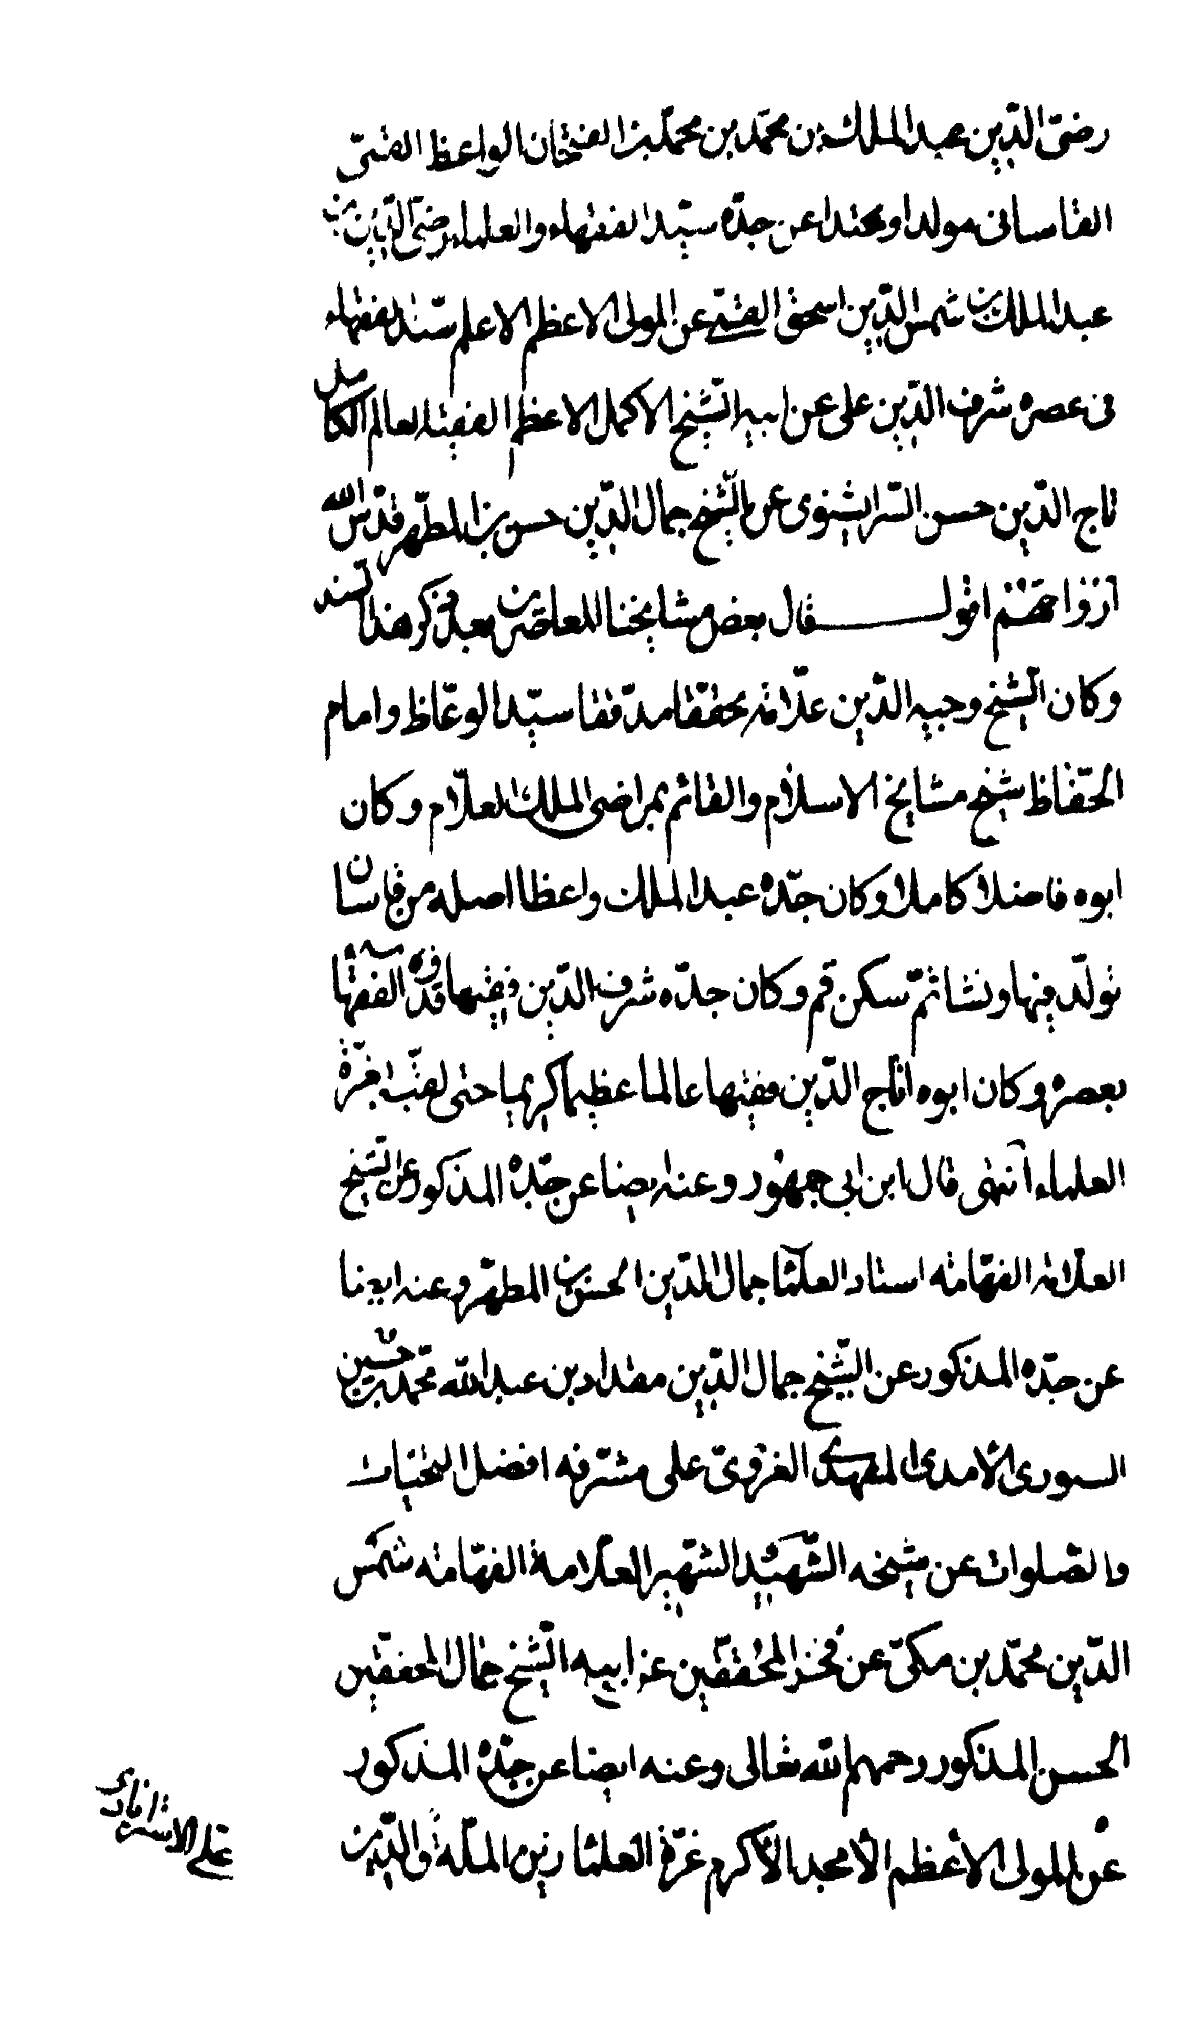 رضيّ الدّين عبد الملك بن محمّد بن محمّد بن الفتحان الواعظ القمّي
القاساني مولدا ومحتدا عن جدّه سيّد الفقهاء والعلماء رضيّ الدّين بن
عبد الملك بن شمس الدّين اسحق القمّي عن المولى الاعظم الاعلم سيّد الفقهاء
في عصره شرف الدّين علي عن ابيه الشّيخ الاكمل الاعظم الفقيه العالم الكامل
تاج الدّين حسن السّرابشنوي عن الشّيخ جمال الدّين حسن بن المطهّر قدّس الله
ارواحهم اقول قال بعض مشايخنا المعاصرين بعد ذكر هذا السند
وكان الشّيخ وجيه الدّين علّامة محقّقا مدقّقا سيّد الوعّاظ وامام
الحفّاظ شيخ مشايخ الاسلام والقائم بمراضي الملك العلّام وكان
ابوه فاضلا كاملا وكان جدّه عبد الملك واعظا اصله من قاسان
تولّد فيها ونشأ ثمّ سكن قم وكان جدّه شرف الدّين فقيها قدوة الفقهاء
بعصره وكان ابوه تاج الدّين فقيها عالما عظيما كريما حتى لقّب بغرّة
العلماء انتهى قال ابن ابي جمهور وعنه ايضا عن جدّه المذكور عن الشّيخ
العلّامة الفهّامة استاد العلماء جمال الدّين الحسن بن المطهّر وعنه ايضا
عن جدّه المذكور عن الشّيخ جمال الدّين مقداد بن عبد الله محمّد بن حسين
السيوري الأسدي المشهدي الغروي علی مشرّفه افضل التحيّات
والصّلوات عن شيخه الشّهيد الشهير العلّامة الفهّامة شمس
الدّين محمّد بن مكّي عن فخر المحقّقين عن ابيه الشّيخ جمال المحققين
الحسن المذكور رحمهم الله تعالى وعنه ايضا عن جدّه المذكور
عن المولى الأعظم الأمجد الأكرم غرّة العلماء زين الملّة والدّين
علي الاسترابادي